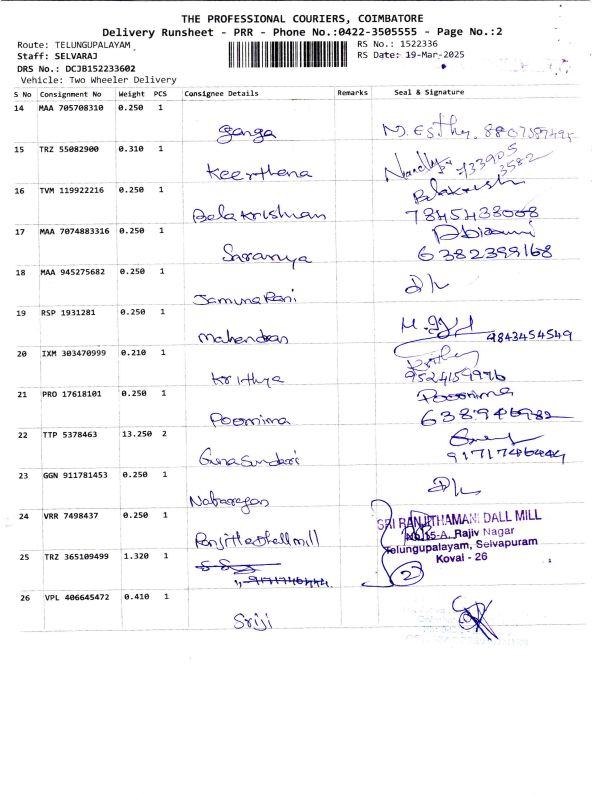 THE PROFESSIONAL COURIERS, COIMBATORE
Delivery Runsheet - PRR - Phone No.:0422-3505555 - Page No.:2
Route: TELUNGUPALAYAM RS No.: 1522336
Staff: SELVARAJ RS Date: 19-Mar-2025
DRS No.: DCJB152233602
Vehicle: Two Wheeler Delivery
S No Consignment No Weight PCS Consignee Details Remarks Seal & Signature
14 MAA 705708310 0.250 1
Ganga N. Esthy.
15 TRZ 55082900 0.310 1
Keerthena
16 TVM 119922216 0.250 1
Belakrishnan 7845438008
17 MAA 7074883316 0.250 1
Saranya 6382399168
18 MAA 945275682 0.250 1
JamunaRani
19 RSP 1931281 0.250 1
Mahendran 9843454549
20 IXM 303470999 0.210 1
Krithya 9524159976
21 PRO 17618101 0.250 1 Poornima
Poornima
22 TTP 5378463 13.250 2
GunaSundari 9171746444
23 GGN 911781453 0.250 1
24 VRR 7498437 0.250 1
SRI RANJITHAMANI DALL MILL
No.15-A, Rajiv Nagar
Telungupalayam, Selvapuram
Kovai - 26
25 TRZ 365109499 1.320 1
9171746444 2
26 VPL 406645472 0.410 1
Sriji